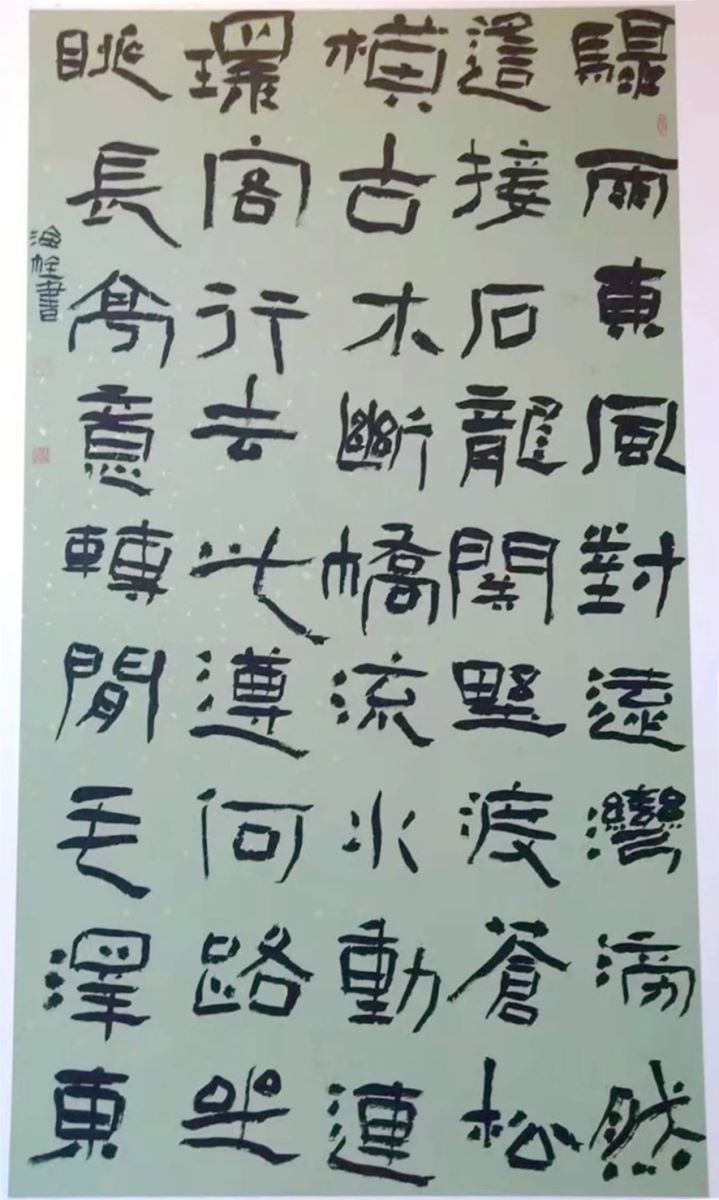 驟雨東風對遠灣滂然
遙接石龍關野渡蒼松
橫古木斷橋流水動連
環客行去此遵何路坐
眺長亭意轉閒毛澤東
海書